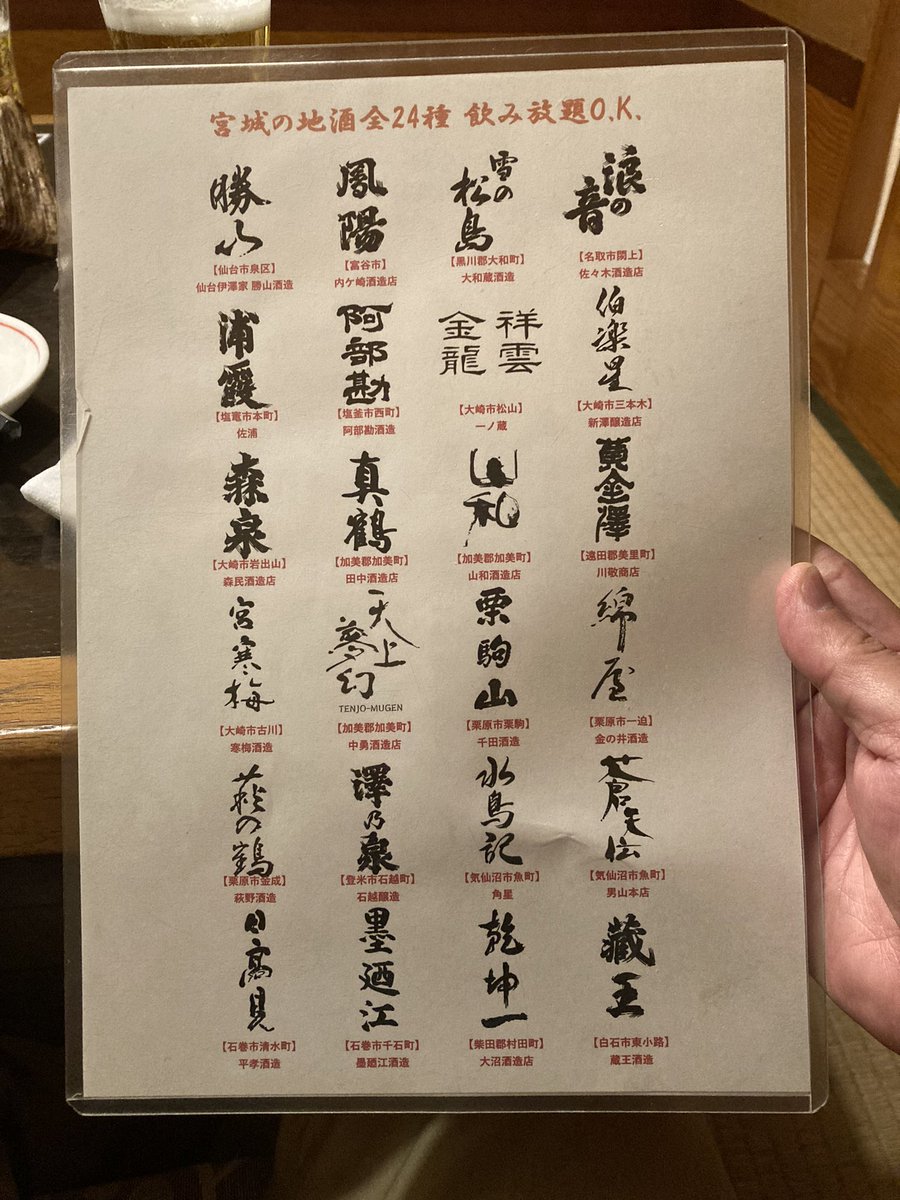 宮城の地酒全24種 飲み放題O.K.
勝山
【仙台市泉区】
仙台伊澤家 勝山酒造
鳳陽
【富谷市】
内ケ崎酒造店
雪の松島
【黒川郡大和町】
大和蔵酒造
浪の音
【名取市閖上】
佐々木酒造店
浦霞
【塩竈市本町】
佐浦
阿部勘
【塩釜市西町】
阿部勘酒造
祥雲
金龍
【大崎市松山】
一ノ蔵
伯楽星
【大崎市三本木】
新澤醸造店
森泉
【大崎市岩出山】
森民酒造店
真鶴
【加美郡加美町】
田中酒造店
山和
【加美郡加美町】
山和酒造店
黄金澤
【遠田郡美里町】
川敬商店
宮寒梅
【大崎市古川】
寒梅酒造
天上
夢幻
TENJO-MUGEN
【加美郡加美町】
中勇酒造店
栗駒山
【栗原市栗駒】
千田酒造
綿屋
【栗原市一迫】
金の井酒造
萩の鶴
【栗原市金成】
萩野酒造
澤乃泉
【登米市石越町】
石越醸造
水鳥記
【気仙沼市魚町】
角星
蒼天伝
【気仙沼市魚町】
男山本店
日高見
【石巻市清水町】
平孝酒造
墨廼江
【石巻市千石町】
墨廼江酒造
乾坤一
【柴田郡村田町】
大沼酒造店
蔵王
【白石市東小路】
蔵王酒造